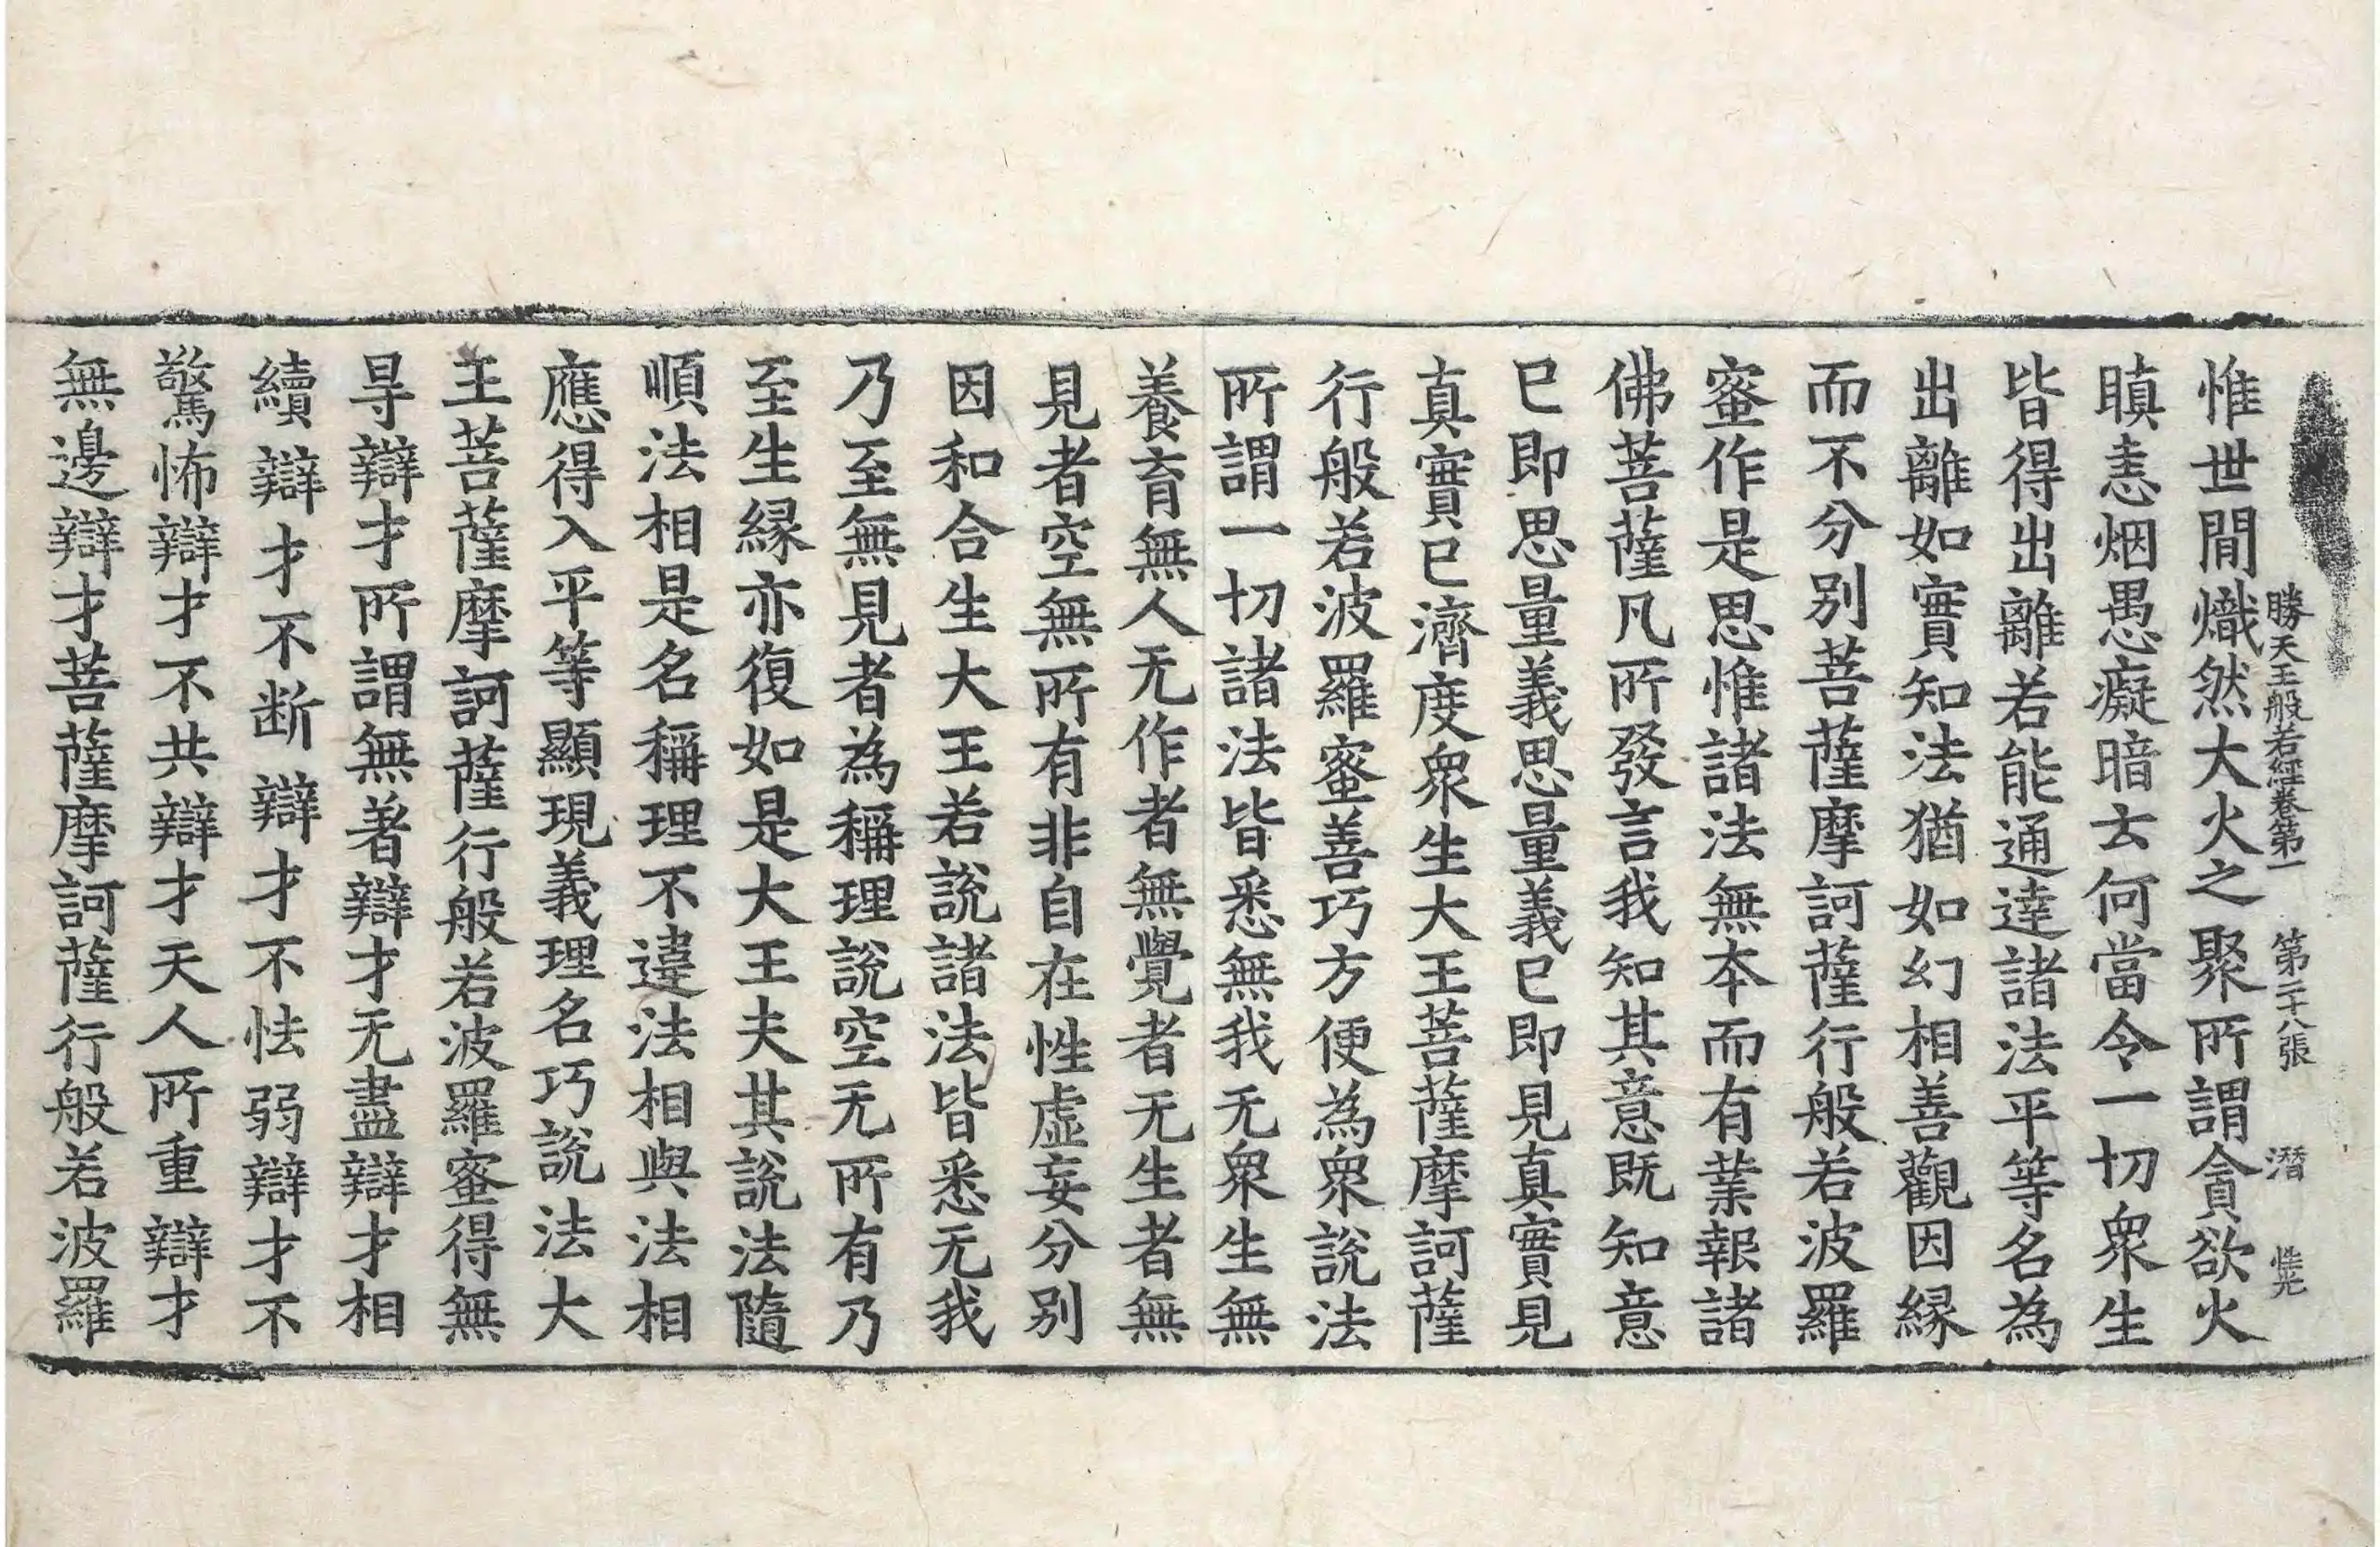 勝天王般若經卷第一　第二十八張　潛　惟光
惟世間熾然大火之聚所謂貪欲火
瞋恚烟愚癡暗云何當令一切衆生
皆得出離若能通達諸法平等名為
出離如實知法猶如幻相善觀因縁
而不分別菩薩摩訶薩行般若波羅
蜜作是思惟諸法無本而有業報諸
佛菩薩凡所發言我知其意既知意
已即思量義思量義已即見真實見
真實已濟度衆生大王菩薩摩訶薩
行般若波羅蜜善巧方便為衆說法
所謂一切諸法皆悉無我无衆生無
養育無人无作者無覺者无生者無
見者空無所有非自在性虛妄分别
因和合生大王若說諸法皆悉无我
乃至無見者為稱理說空无所有乃
至生縁亦復如是大王夫其說法隨
順法相是名稱理不違法相與法相
應得入平等顯現義理名巧說法大
王菩薩摩訶薩行般若波羅蜜得無
㝵辯才所謂無著辯才无盡辯才相
續辯才不断辯才不怯弱辯才不
驚怖辯才不共辯才天人所重辯才
無邊辯才菩薩摩訶薩行般若波羅